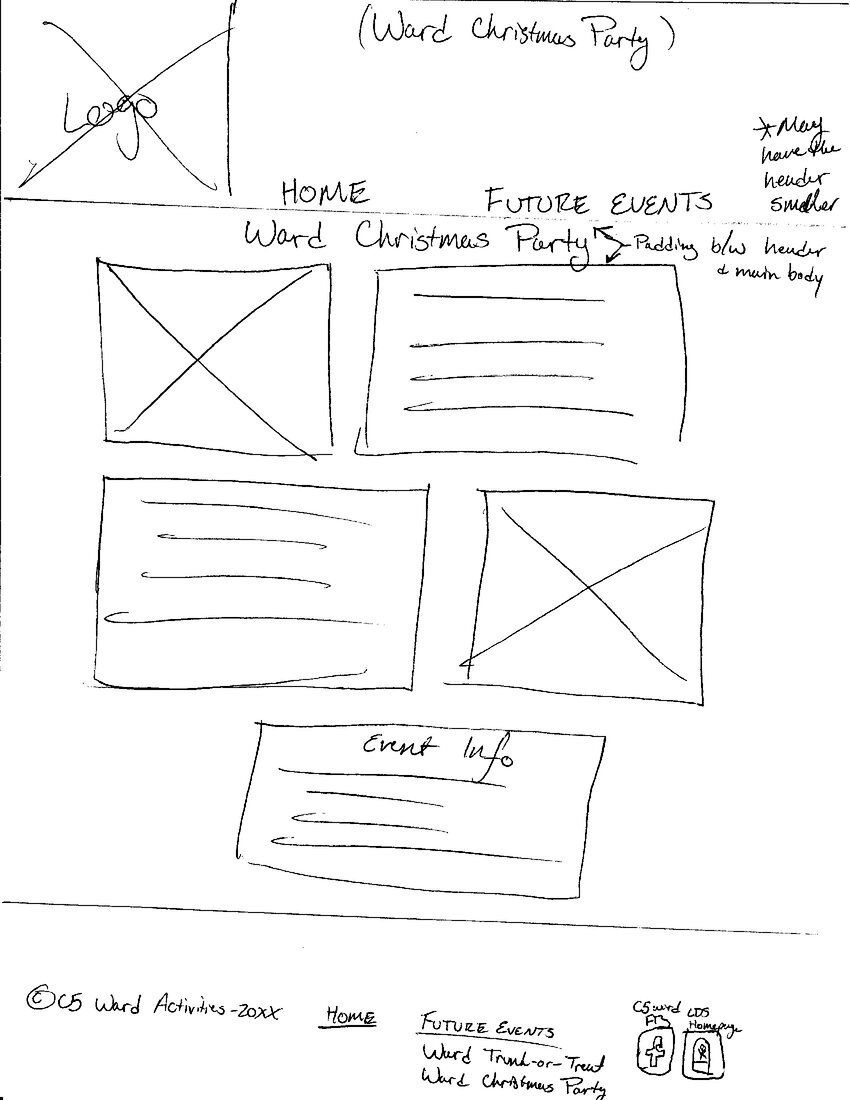 (Ward Christmas Party)
Logo
*May
have the
header
smaller
HOME
FUTURE EVENTS
Ward Christmas Party
Padding b/w header
& main body
Event Info
©C5 Ward Activities-20XX
HOME
FUTURE EVENTS
Ward Trunk-or-Treat
Ward Christmas Party
C5 ward
FB
LDS
Homepage
f